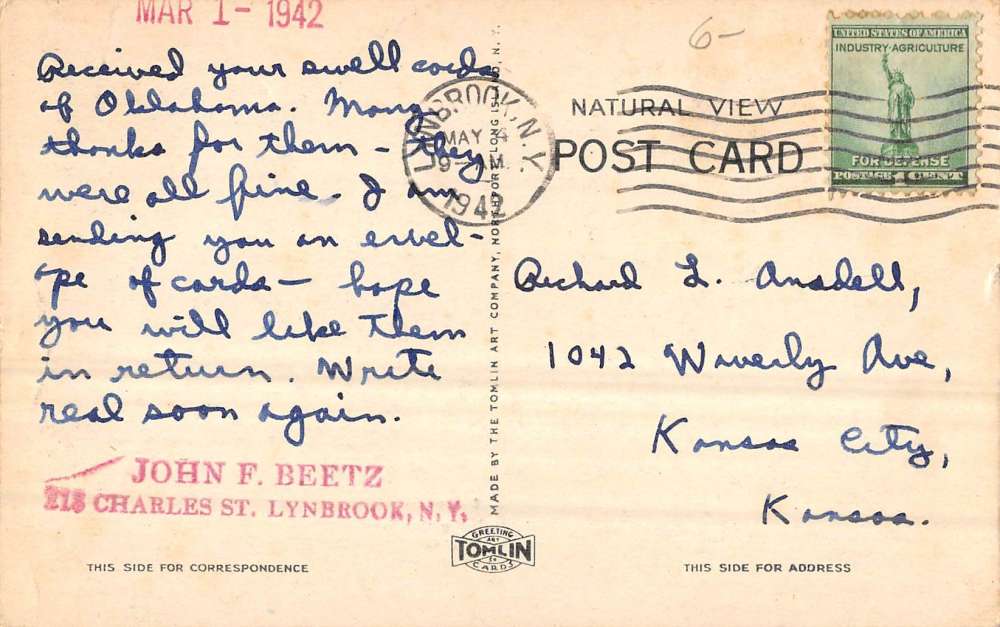 MAR 1 - 1942
Received your swell cards
of Oklahoma. Many
thanks for them - they
were all fine. I am
sending you an envel-
ope of cards - hope
you will like them
in return. Write
real soon again.
JOHN F. BEETZ
218 CHARLES ST. LYNBROOK, N. Y.
THIS SIDE FOR CORRESPONDENCE
MADE BY THE TOMLIN ART COMPANY, NORTHPORT, LONG ISLAND, N. Y.
GREETING
ART
TOMLIN
CARDS
LYNBROOK, N.Y.
MAY 4
9 - AM
1942
6-
NATURAL VIEW
POST CARD
UNITED STATES OF AMERICA
INDUSTRY·AGRICULTURE
FOR DEFENSE
POSTAGE 1 CENT
Richard L. Ansdell,
1042 Waverly Ave,
Kansas City,
Kansas.
THIS SIDE FOR ADDRESS